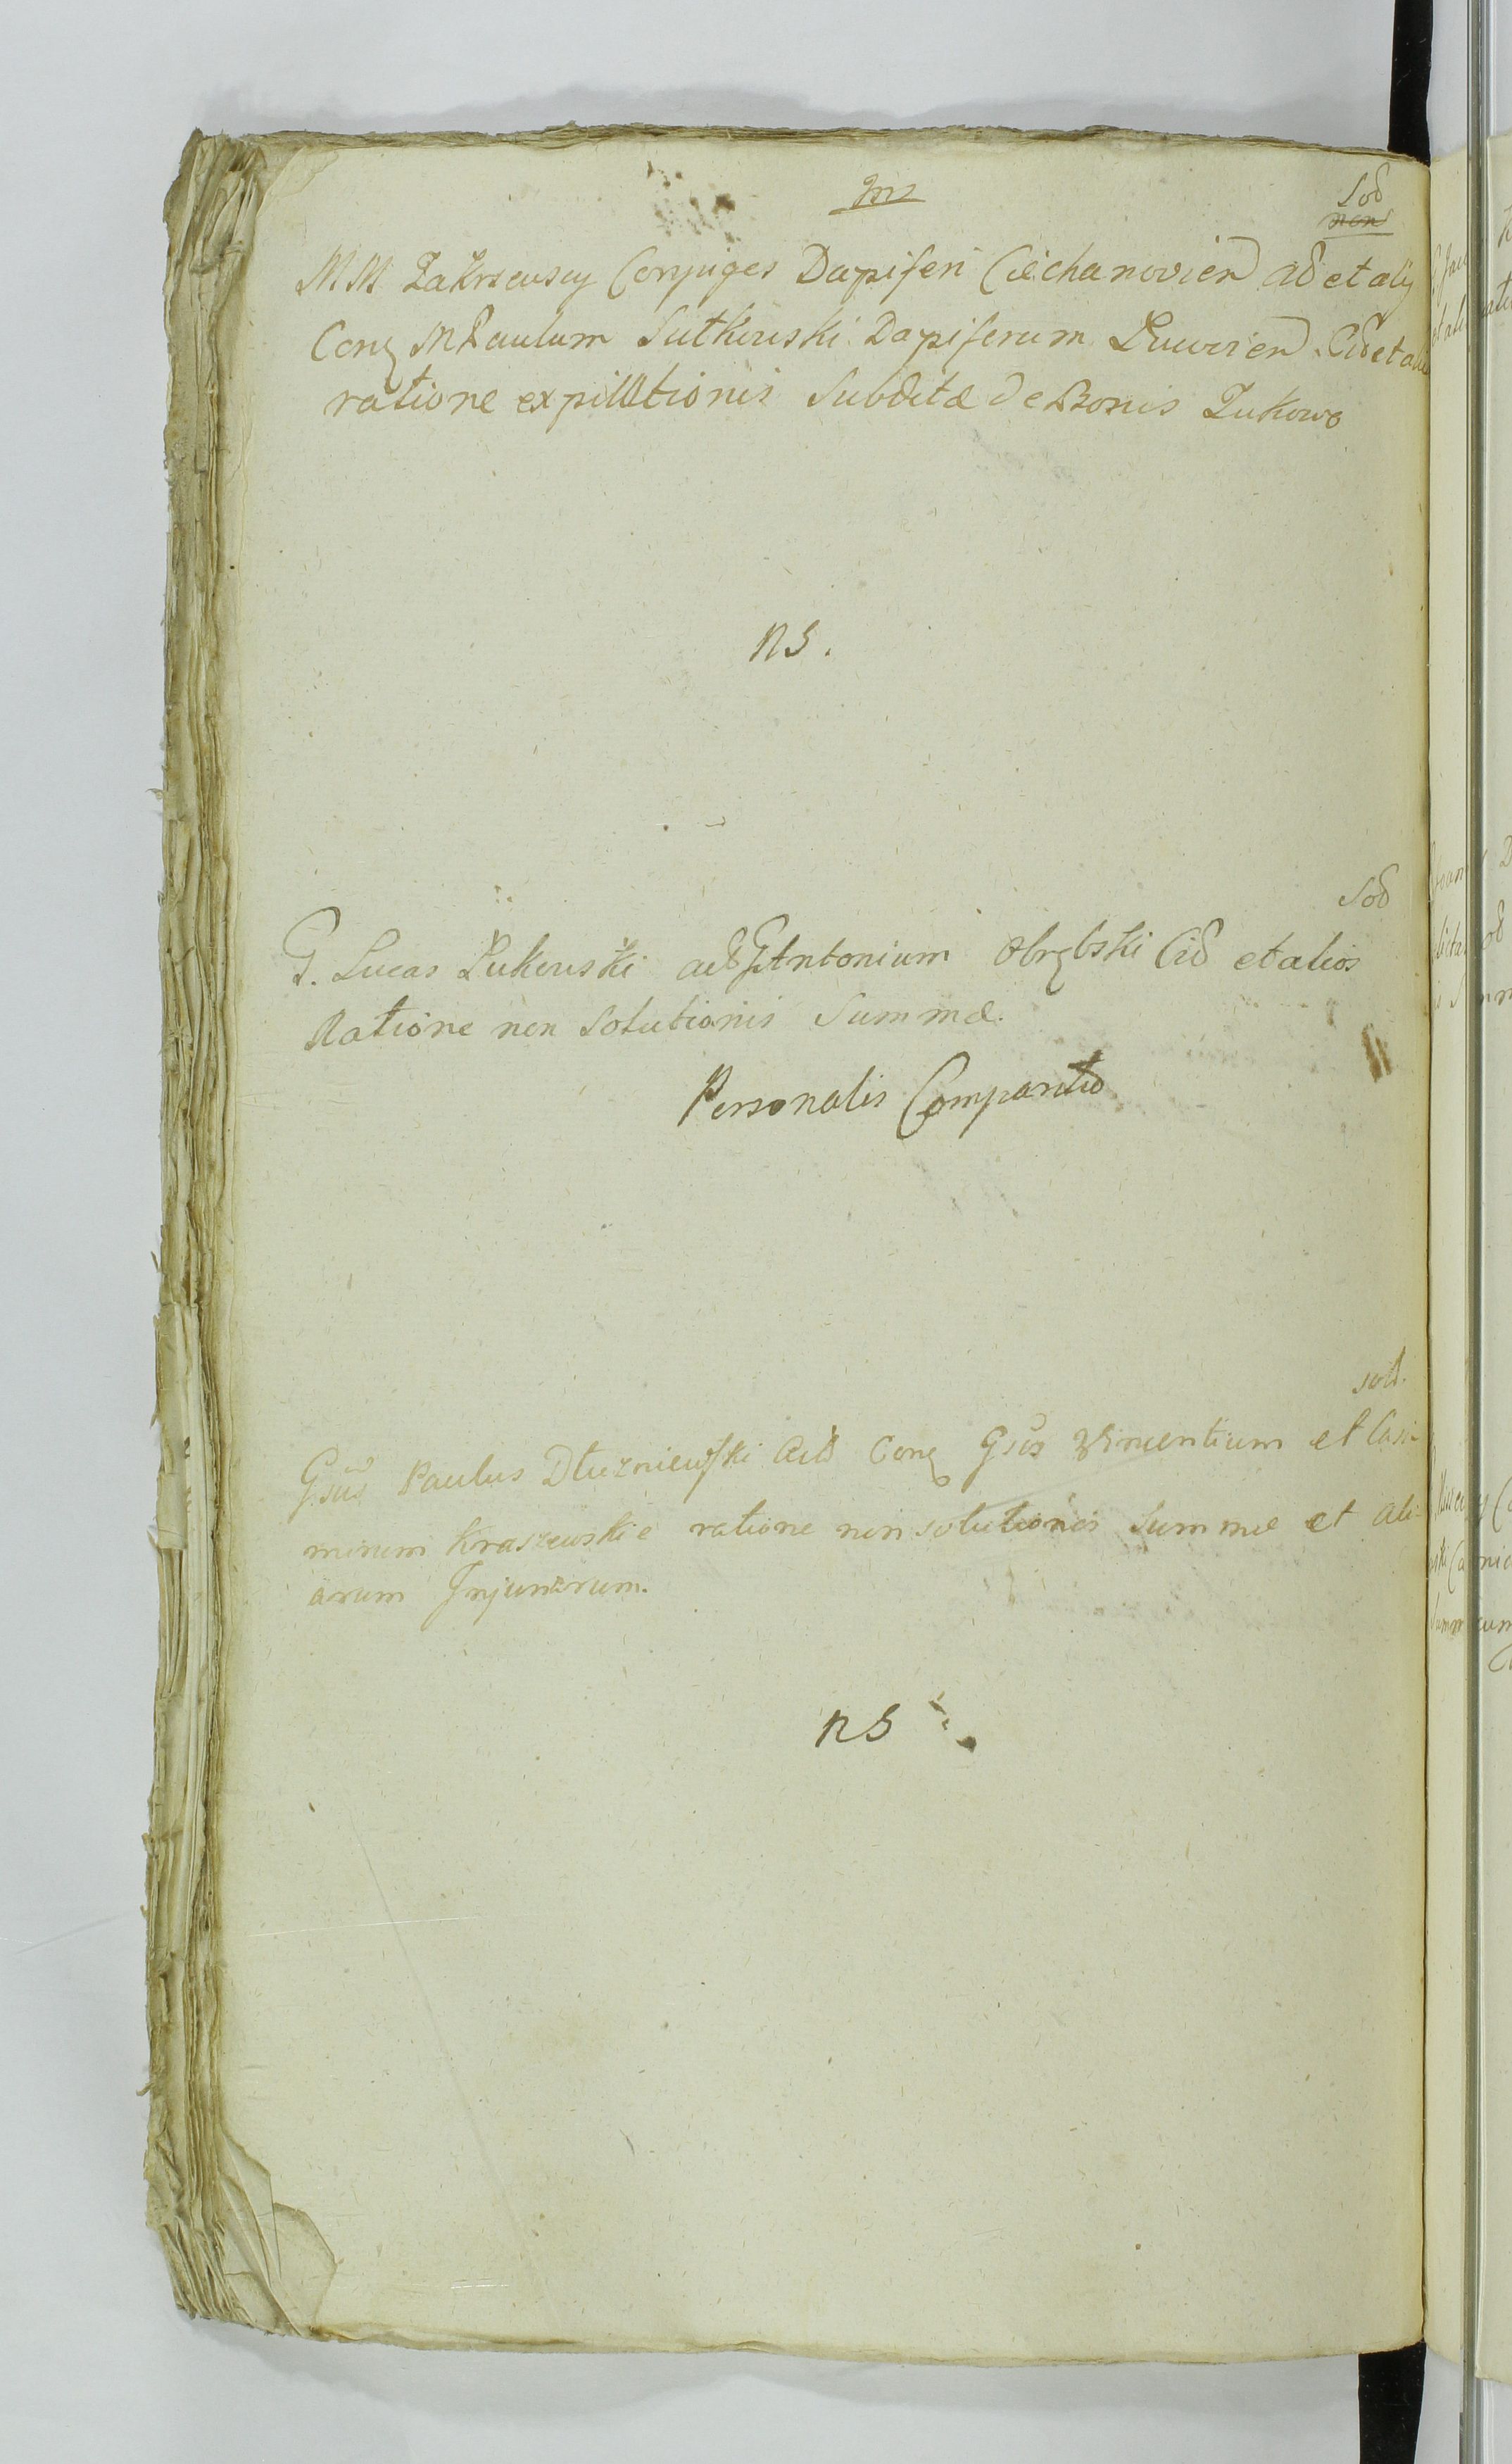 Sod
non
MM Zakrzewscy Conjuges Dapiferi Ciechanovien Ad et alij
Conq M Paulum Sutkowski Dapiferum Zuwien Cid et ali
ratione expillationis Subditæ de Bonis Zukowo
NS.
Sod
G. Lucas Zukowski ad G Antonium Obrębski Cid et alios
Ratione non Solutionis Summæ.
Personalis Comparitio
sod.
Gsus Paulus Dłuzniewski Ad Conq Gsos Vincentium et Casi-
mirum Kraszewskie ratione non solutionis Summæ et ali-
arum Injuriarum.
NS